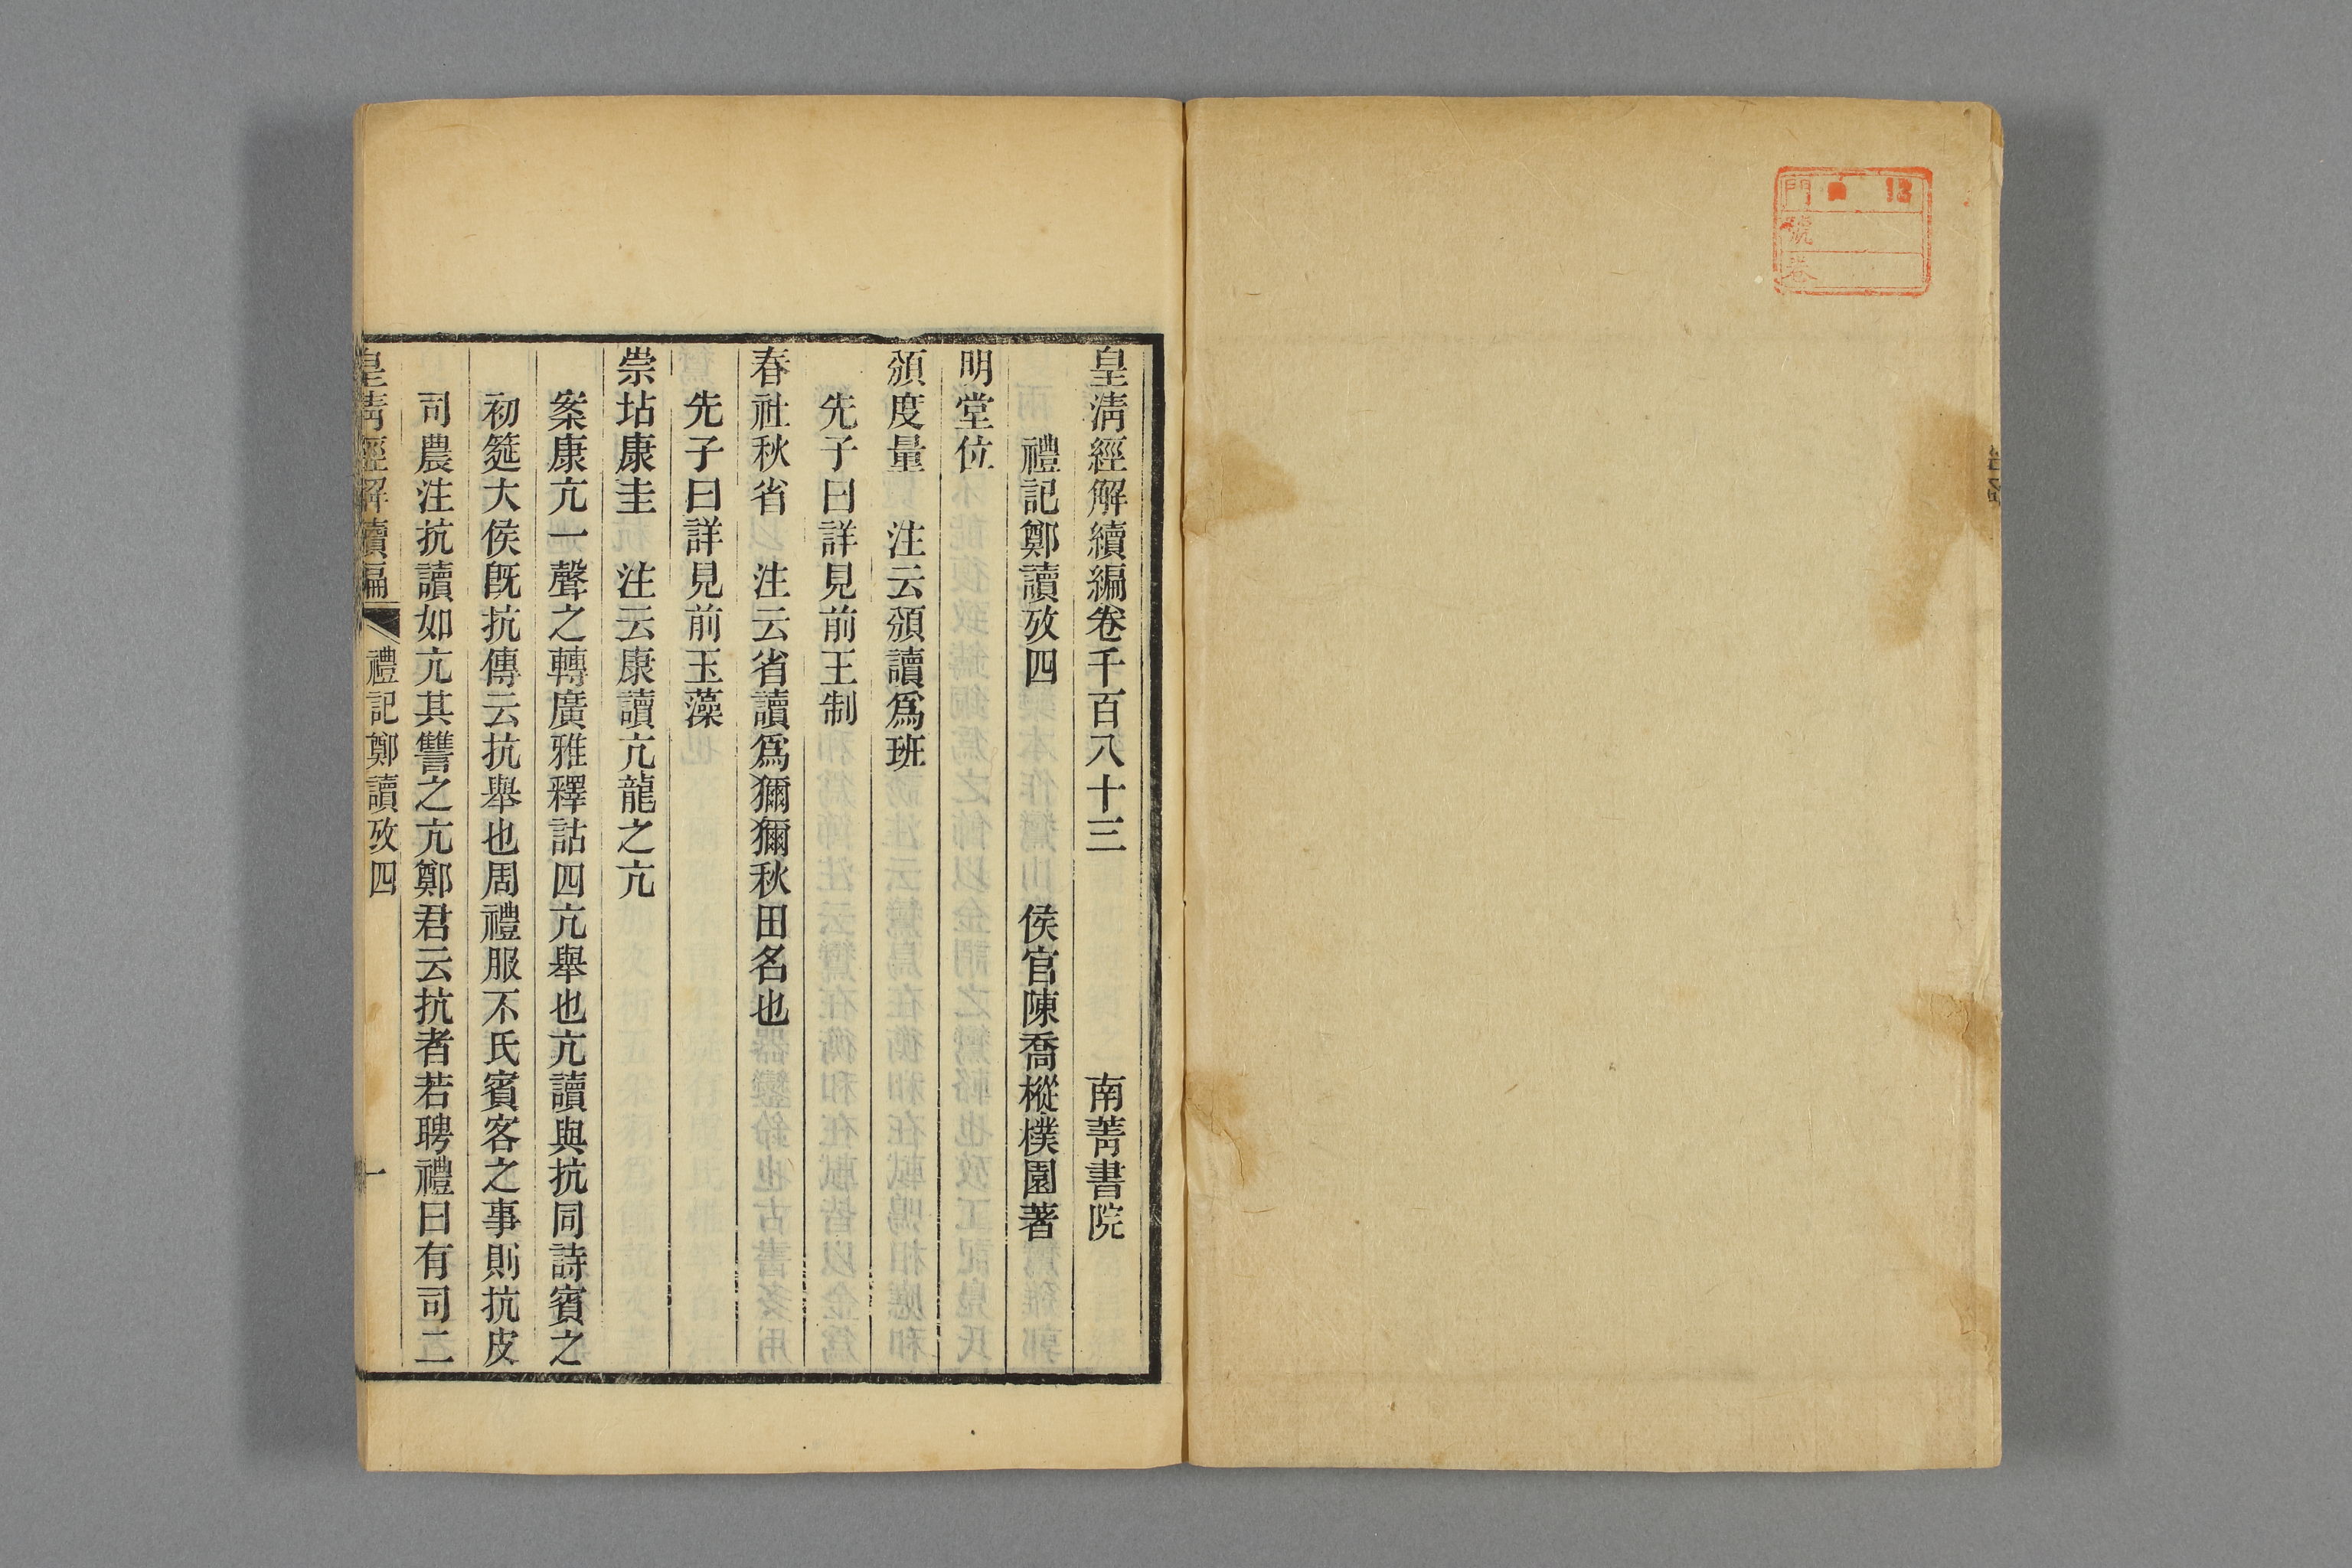 門 13
號
卷
皇清經解續編卷千百八十三 南菁書院
禮記鄭讀攷四 侯官陳喬樅樸園著
明堂位
頒度量 注云頒讀爲班
先子曰詳見前王制
春社秋省 注云省讀爲獮獮秋田名也
先子曰詳見前玉藻
崇坫康圭 注云康讀亢龍之亢
案康亢一聲之轉廣雅釋詁四亢舉也亢讀與抗同詩賓之
初筵大侯旣抗傳云抗舉也周禮服不氏賓客之事則抗皮
司農注抗讀如亢其讐之亢鄭君云抗者若聘禮曰有司二
皇清經解續編 禮記鄭讀攷四 一